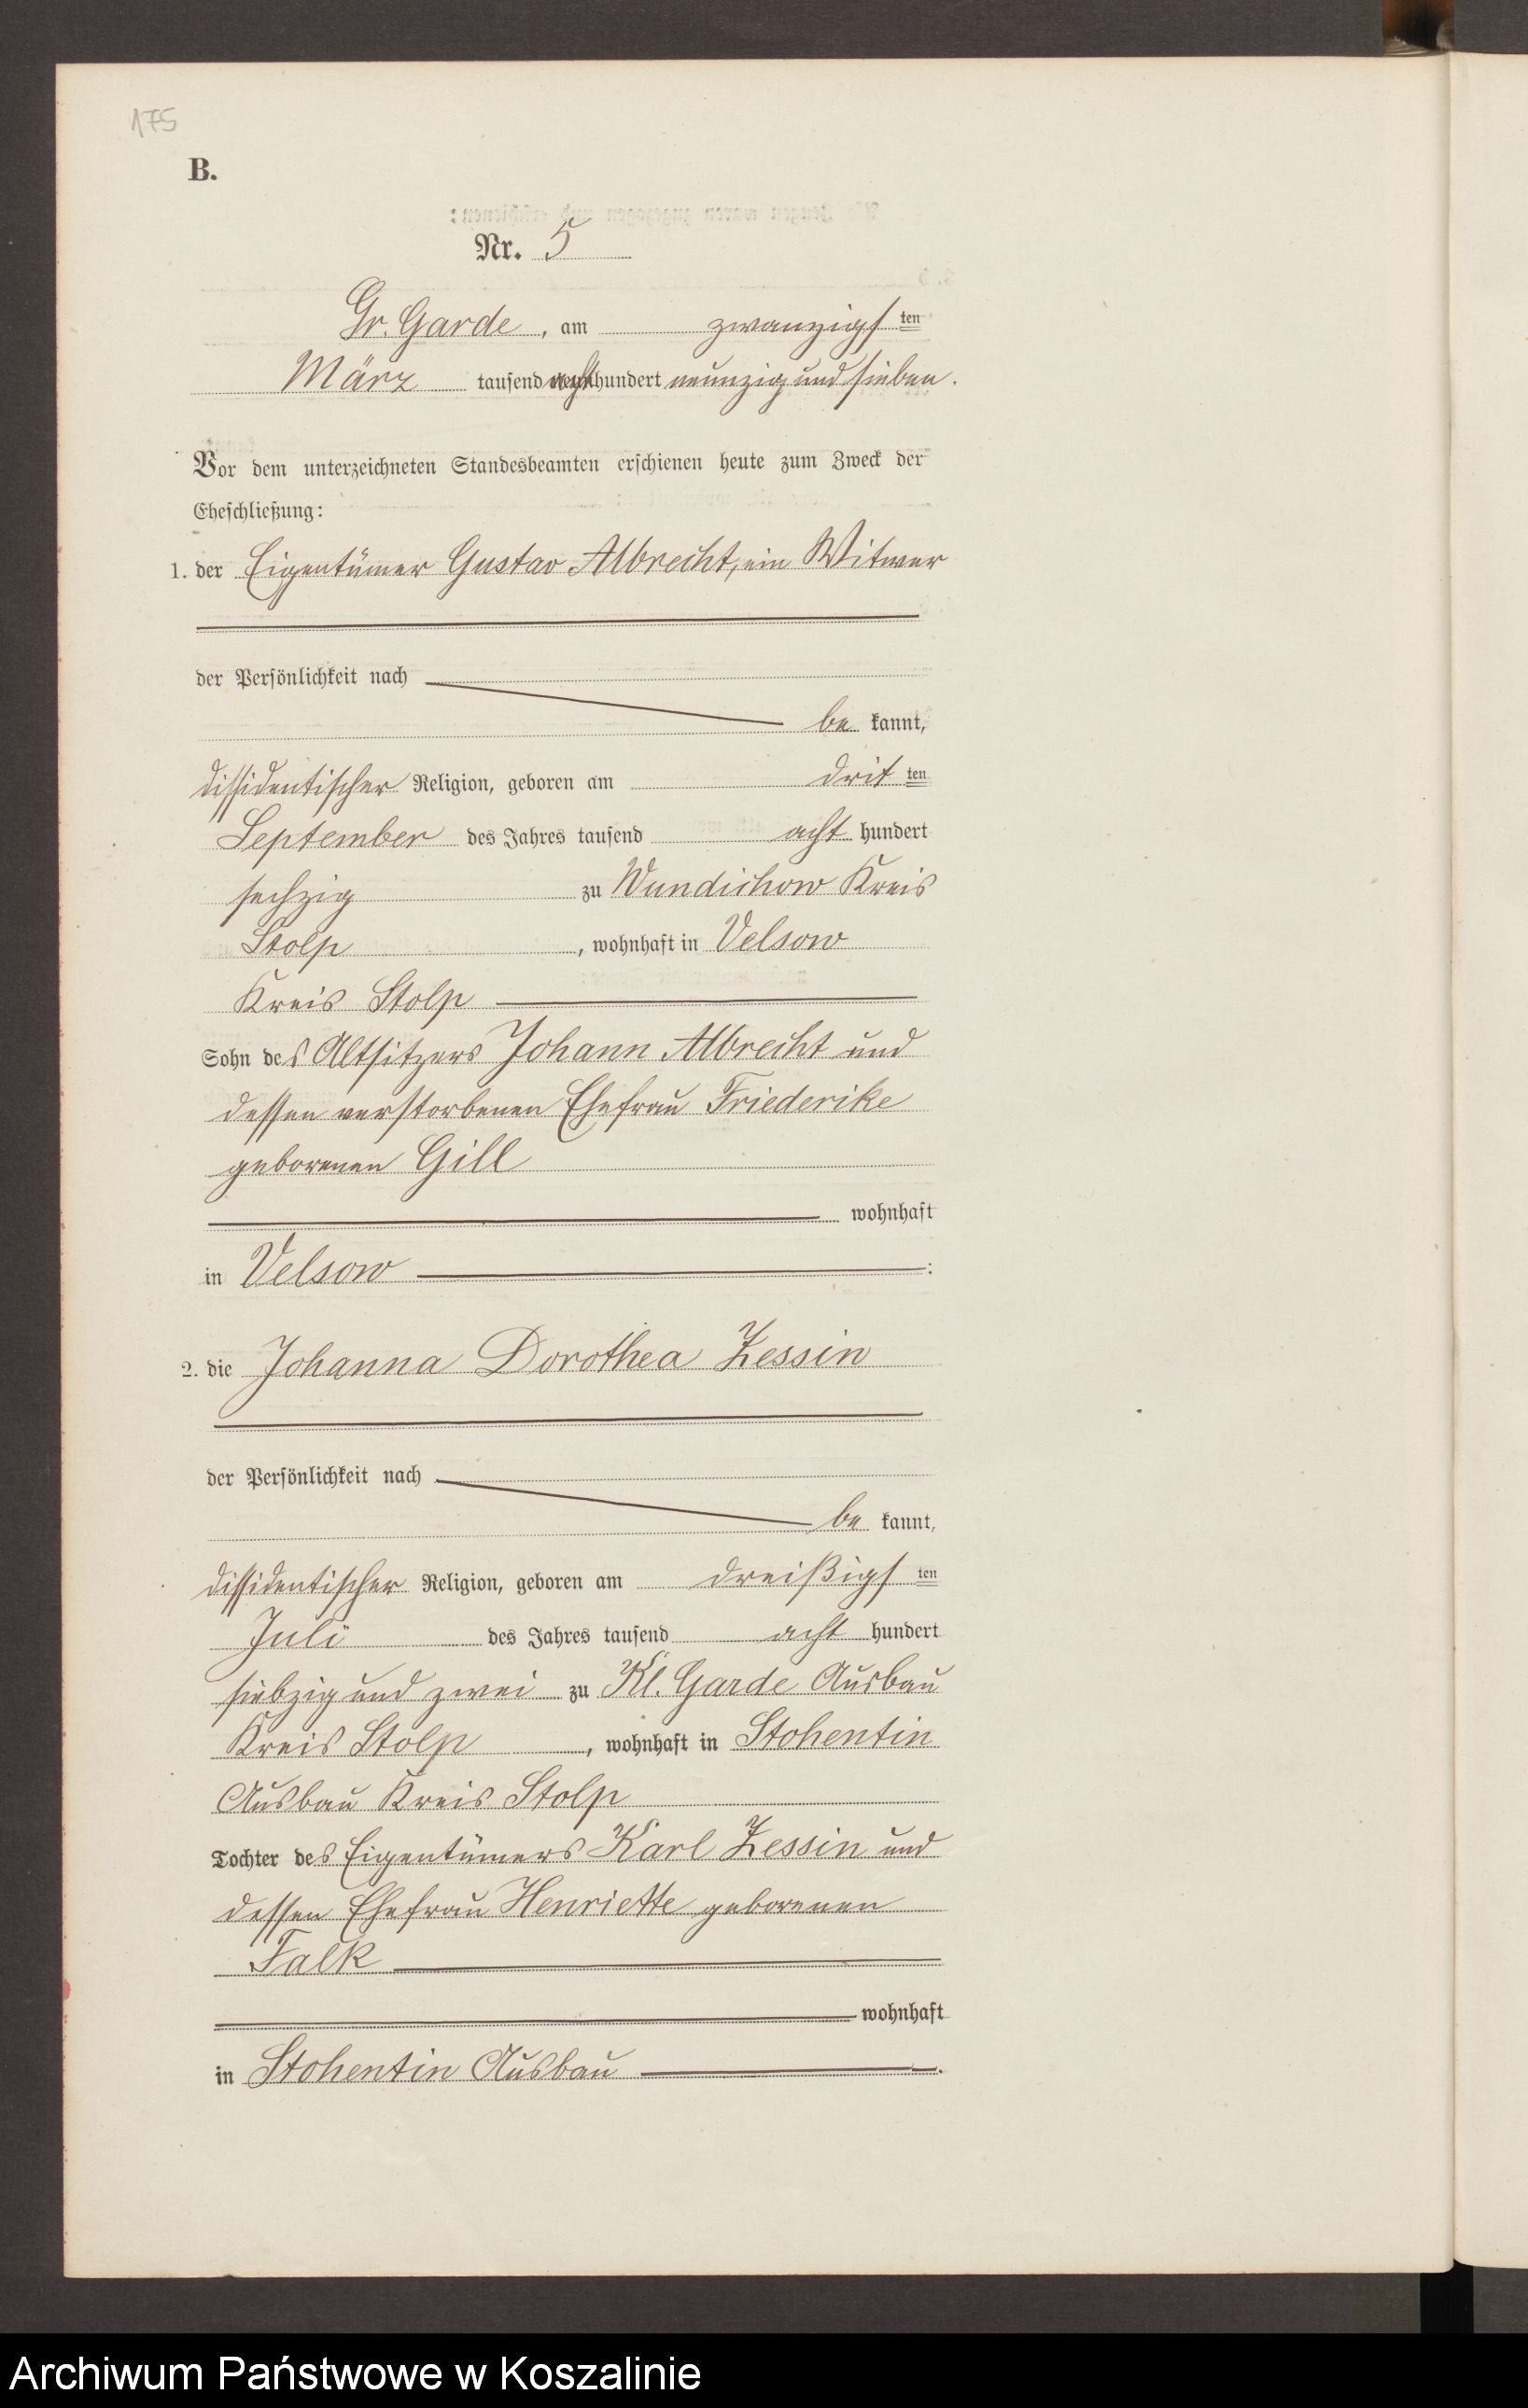 175
B.
Nr. 5
Gr. Garde, am zwanzigsten
März tausend acht hundert neunzig und sieben.
Vor dem unterzeichneten Standesbeamten erschienen heute zum Zweck der
Eheschließung:
1. der Eigentümer Gustav Albrecht, ein Witwer
der Persönlichkeit nach
be kannt,
dissidentischer Religion, geboren am dritten
September des Jahres tausend acht hundert
sechzig zu Wundichow Kreis
Stolp, wohnhaft in Velsow
Kreis Stolp
Sohn des Altsitzers Johann Albrecht und
dessen verstorbenen Ehefrau Friederike
geborenen Gill
wohnhaft
in Velsow :
2. die Johanna Dorothea Zessin
der Persönlichkeit nach
be kannt,
dissidentischer Religion, geboren am dreißigsten
Juli des Jahres tausend acht hundert
siebzig und zwei zu Kl. Garde Ausbau
Kreis Stolp, wohnhaft in Stohentin
Ausbau Kreis Stolp
Tochter des Eigentümers Karl Zessin und
dessen Ehefrau Henriette geborenen
Falk
wohnhaft
in Stohentin Ausbau .
Archiwum Państwowe w Koszalinie